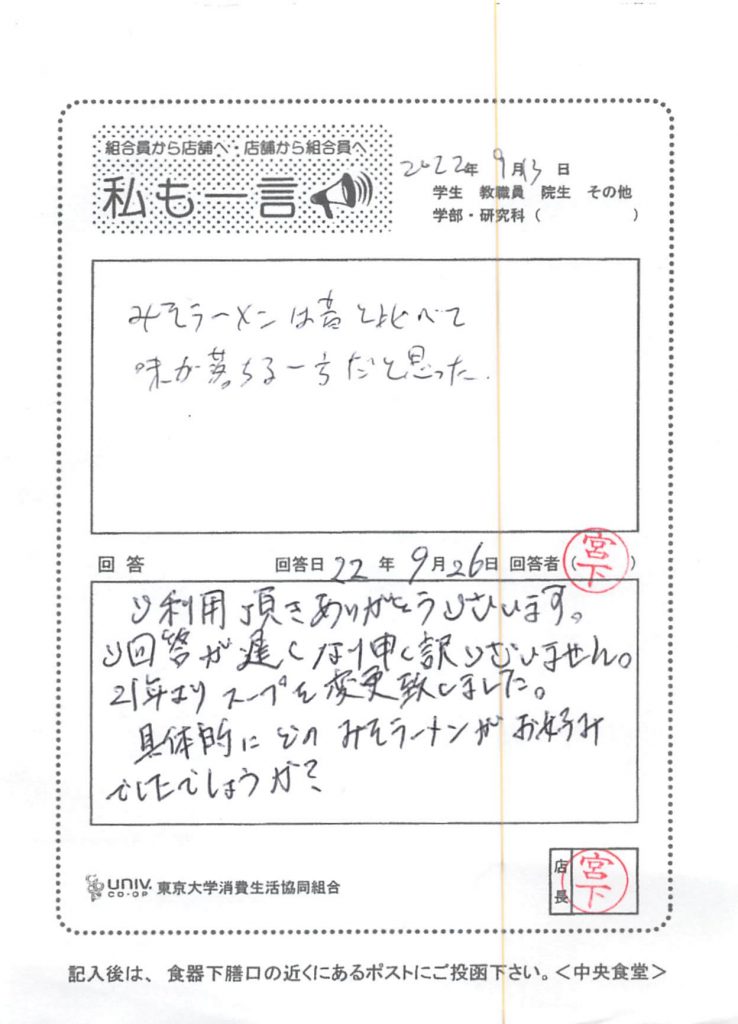 組合員から店舗へ・店舗から組合員へ
私も一言
2022年 9月13日
学生 教職員 院生 その他
学部・研究科( )
みそラーメンは昔と比べて
味が落ちる一方だと思った.
回答 回答日 22年 9月26日 回答者(宮下)
ご利用頂きありがとうございます。
ご回答が遅くなり申し訳ございません。
21年よりスープを変更致しました。
具体的にどのみそラーメンがお好み
でしたでしょうか?
店長 宮下
UNIV. CO-OP 東京大学消費生活協同組合
記入後は、食器下膳口の近くにあるポストにご投函下さい。<中央食堂>